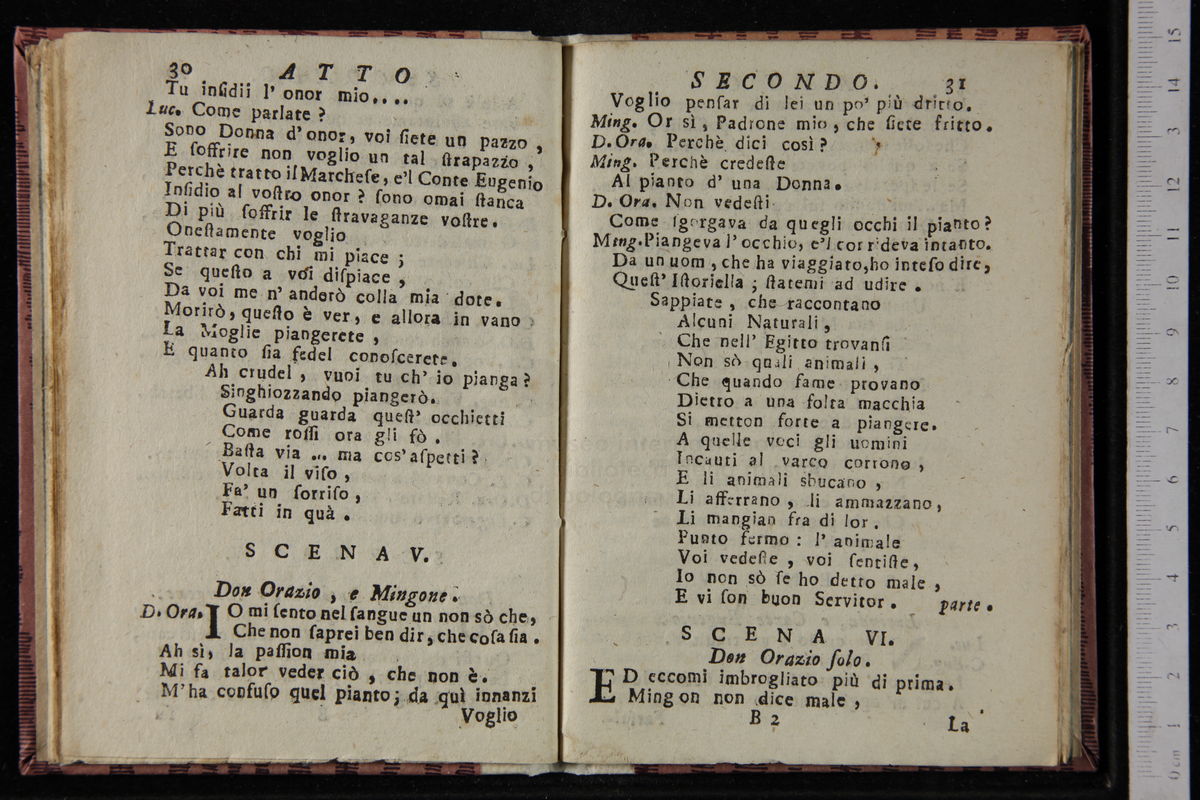 30 ATTO
Tu inſidii l' onor mio....
Luc. Come parlate ?
Sono Donna d'onor, voi ſiete un pazzo ,
E ſoffrire non voglio un tal ſtrapazzo ,
Perchè tratto il Marcheſe, e'l Conte Eugenio
Inſidio al voſtro onor ? ſono omai ſtanca
Di più ſoffrir le ſtravaganze voſtre.
Oneſtamente voglio
Trattar con chi mi piace ;
Se queſto a voi diſpiace ,
Da voi me n' anderò colla mia dote.
Morirò, queſto è ver, e allora in vano
La Moglie piangerete ,
E quanto ſia fedel conoſcerete.
Ah crudel , vuoi tu ch' io pianga ?
Singhiozzando piangerò.
Guarda guarda queſt' occhietti
Come roſſi ora gli fò .
Baſta via ... ma cos'aſpetti ?
Volta il viſo ,
Fa' un ſorriſo ,
Fatti in quà .
SCENA V.
Don Orazio , e Mingone .
D. Ora. IO mi ſento nel ſangue un non sò che,
Che non ſaprei ben dir, che coſa ſia .
Ah sì, la paſſion mia
Mi fa talor veder ciò , che non è.
M'ha confuſo quel pianto; da quì innanzi
Voglio
SECONDO. 31
Voglio penſar di lei un po' più dritto.
Ming. Or sì , Padrone mio , che ſiete fritto.
D. Ora. Perchè dici così ?
Ming. Perchè credeſte
Al pianto d' una Donna.
D. Ora. Non vedeſti
Come ſgorgava da quegli occhi il pianto ?
Ming. Piangeva l'occhio, e'l cor rideva intanto.
Da un uom , che ha viaggiato, ho inteſo dire,
Queſt' Iſtoriella ; ſtatemi ad udire .
Sappiate , che raccontano
Alcuni Naturali ,
Che nell' Egitto trovanſi
Non sò quali animali ,
Che quando fame provano
Dietro a una folta macchia
Si metton forte a piangere.
A quelle voci gli uomini
Incauti al varco corrono ,
E li animali sbucano ,
Li afferrano , li ammazzano,
Li mangian fra di lor .
Punto fermo : l' animale
Voi vedeſte , voi ſentiſte,
Io non sò ſe ho detto male ,
E vi ſon buon Servitor . parte .
SCENA VI.
Don Orazio ſolo.
ED eccomi imbrogliato più di prima.
Mingon non dice male ,
B 2
La
0 cm 1 2 3 4 5 6 7 8 9 10 11 12 13 14 15